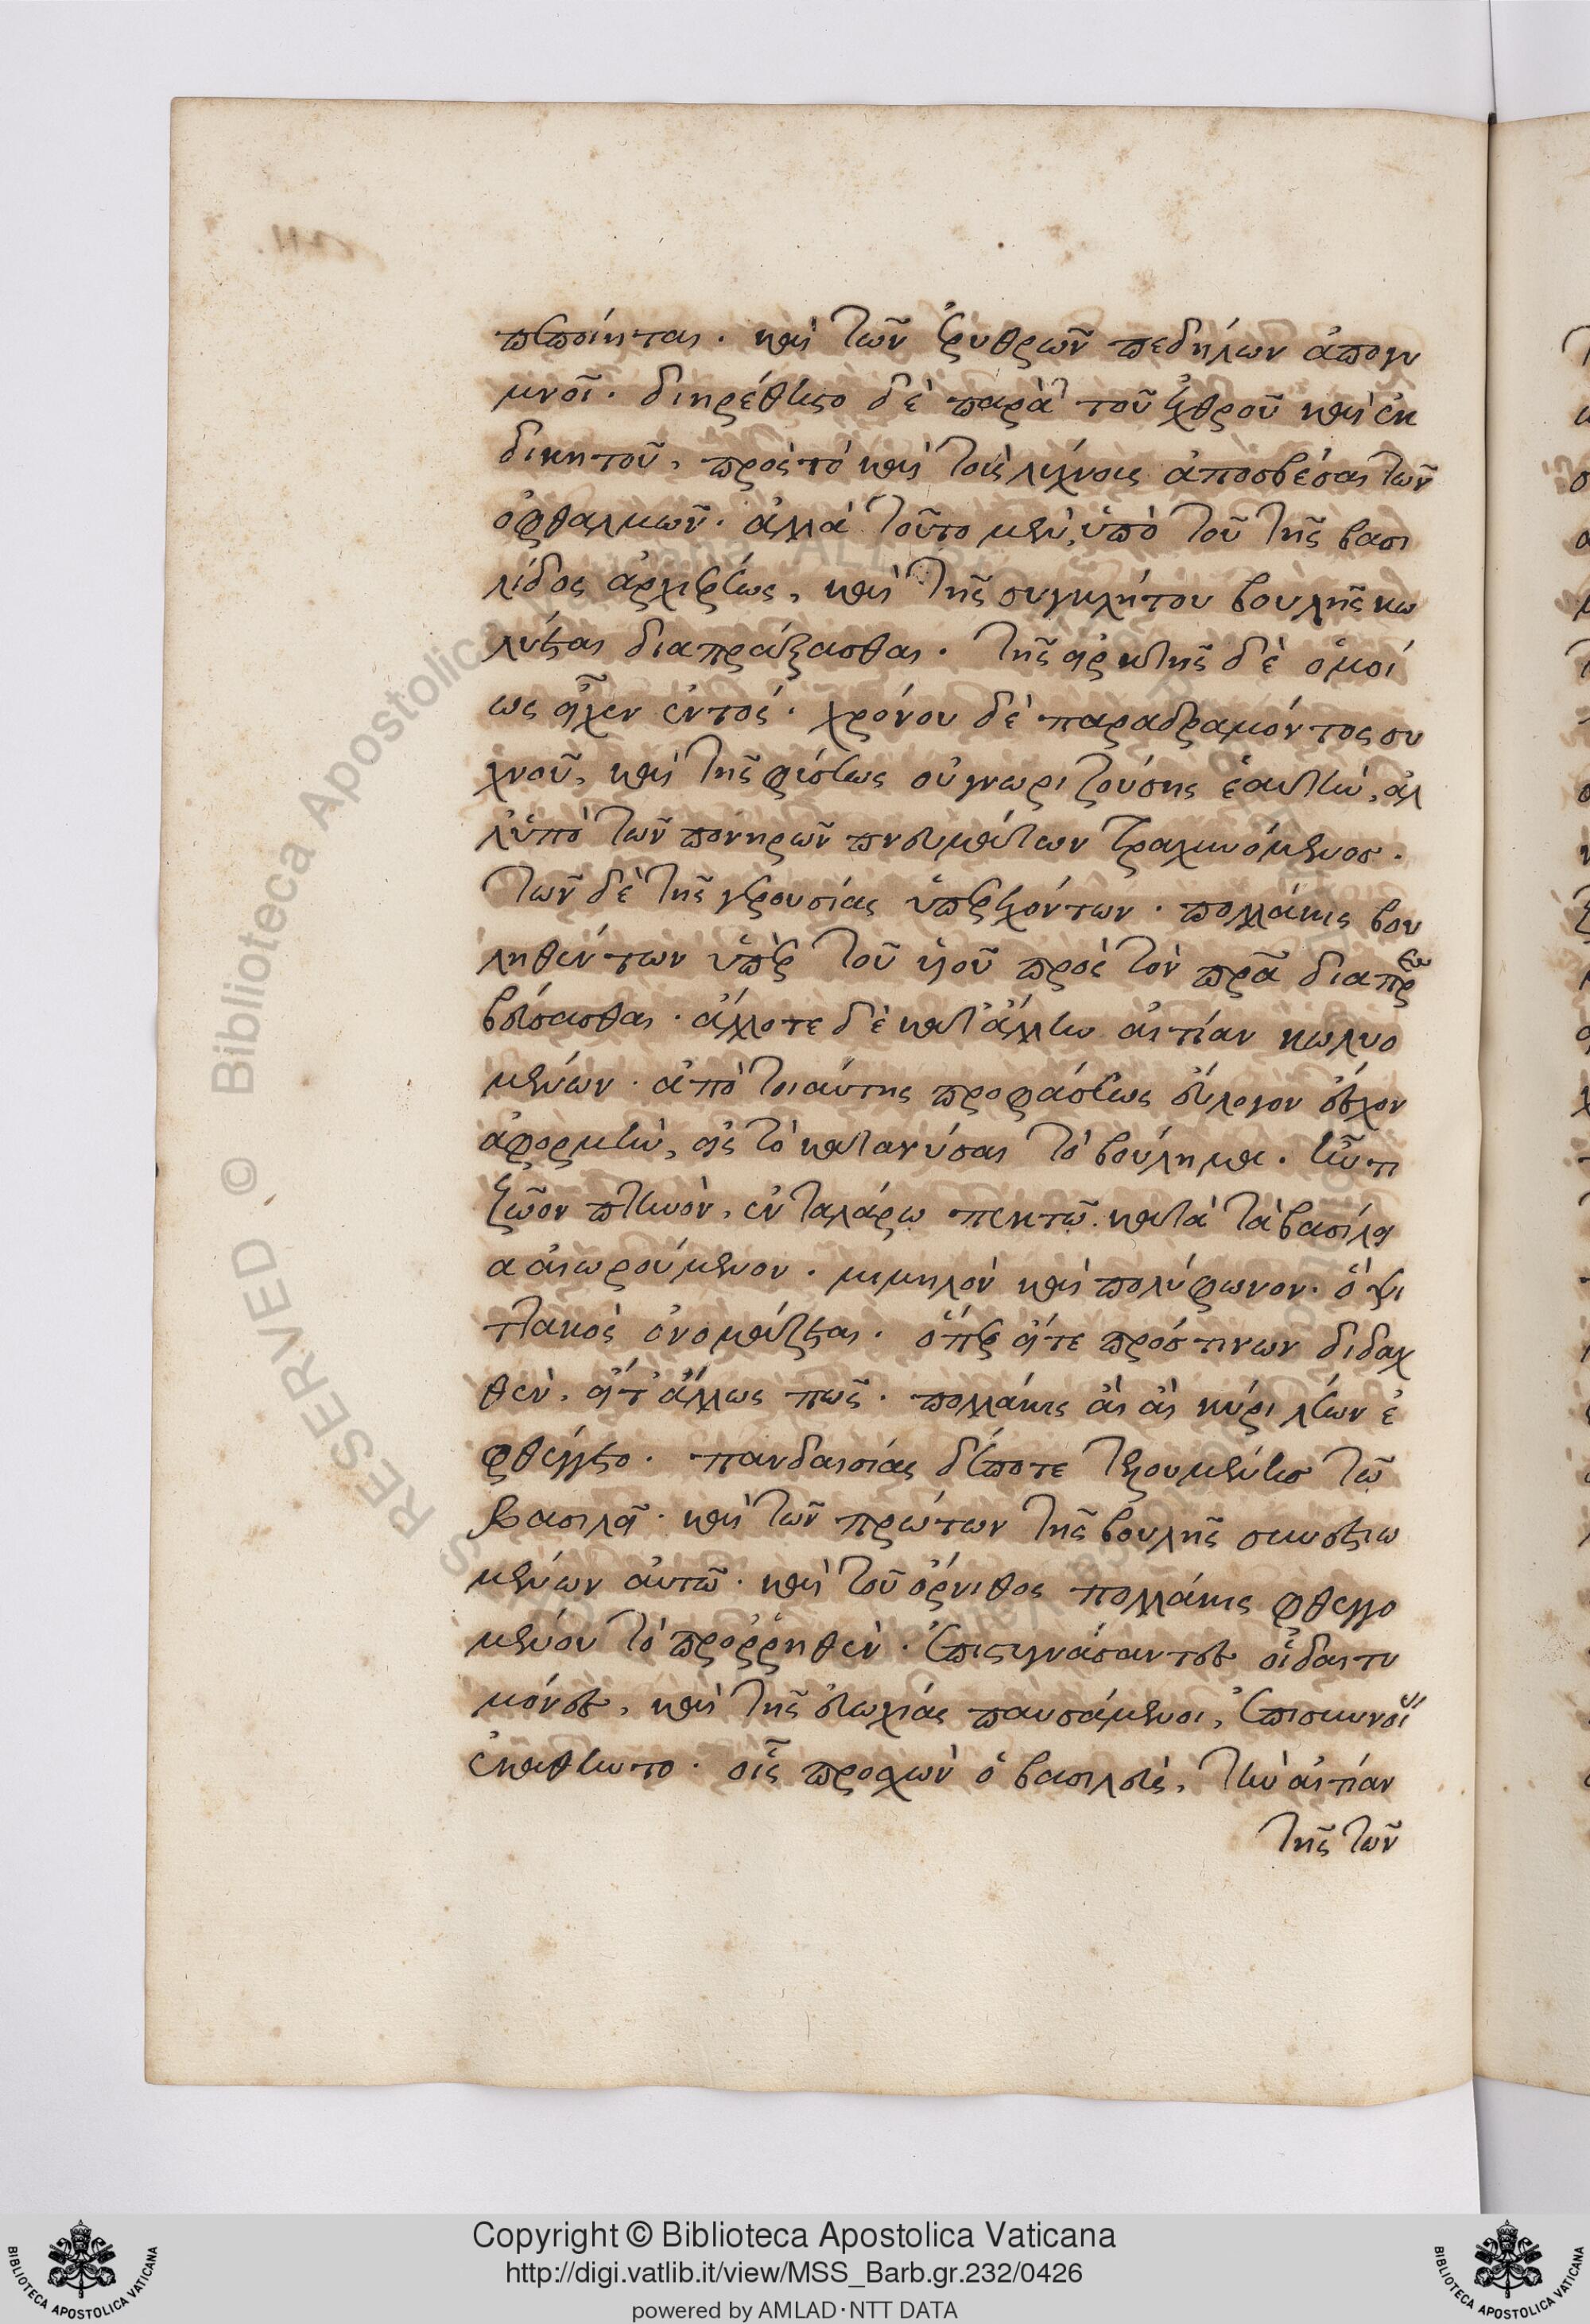 πεποίηται. καὶ τῶν ἐρυθρῶν πεδήλων ἀπογυ
μνοῖ. διηρέθιστο δὲ παρὰ τοῦ ἐχθροῦ καὶ ἐκ
δικητοῦ, πρὸς τὸ καὶ τοὺς λύχνους ἀποσβέσαι τῶν
ὀφθαλμῶν. ἀλλὰ τοῦτο μὲν, ὑπὸ τοῦ τῆς βασι
λίδος ἀρχιερέως, καὶ τῆς συγκλήτου βουλῆς κω
λύεται διαπράξασθαι. τῆς εἱρκτῆς δὲ ὁμοί
ως εἶχεν ἐντός. χρόνου δὲ παραδραμόντος συ
χνοῦ, καὶ τῆς φύσεως οὐ γνωριζούσης ἑαυτὴν, ἀλ
λ' ὑπὸ τῶν πονηρῶν πνευμάτων τραχυνόμενος.
τῶν δὲ τῆς γερουσίας ὑπερεχόντων. πολλάκις βου
ληθέντων ὑπὲρ τοῦ υἱοῦ πρὸς τὸν πρα διαπρε
βεύσασθαι. ἄλλοτε δὲ κατ' ἄλλην αἰτίαν κωλυο
μένων. ἀπὸ τοιαύτης προφάσεως εὔλογον εὗρον
ἀφορμὴν, εἰς τὸ κατανύσαι τὸ βούλημα. ἦν τι
ζῶον πτηνὸν, ἐν ταλάρω πεκτῶ κατὰ τὰ βασίλει
α αἰωρούμενον. μιμηλὸν καὶ πολύφωνον. ὃ ψι
τακὸς ὀνομάζεται. ὅπερ εἴτε πρός τινων διδαχ
θὲν, εἴτ' ἄλλως πῶς. πολλάκις αἲ αἲ κύρι λέων ἐ
φθέγγετο. πανδαισίας δέ ποτε τελουμένης τῶ
βασιλεῖ. καὶ τῶν πρώτων τῆς βουλῆς συνεστιω
μένων αὐτῶ. καὶ τοῦ ὄρνιθος πολλάκις φθεγγο
μένου τὸ προρρηθὲν. ἐπιστυγνάσαντες οἱ δαιτυ
μόνες, καὶ τῆς εὐωχίας παυσάμενοι, ἐπισκυνοὶ
ἐκάθηντο. οἷς προσχὼν ὁ βασιλεὺς, τὴν αἰτίαν
τῆς τῶν
Copyright © Biblioteca Apostolica Vaticana
http://digi.vatlib.it/view/MSS_Barb.gr.232/0426
powered by AMLAD·NTT DATA
BIBLIOTECA APOSTOLICA VATICANA
BIBLIOTECA APOSTOLICA VATICANA